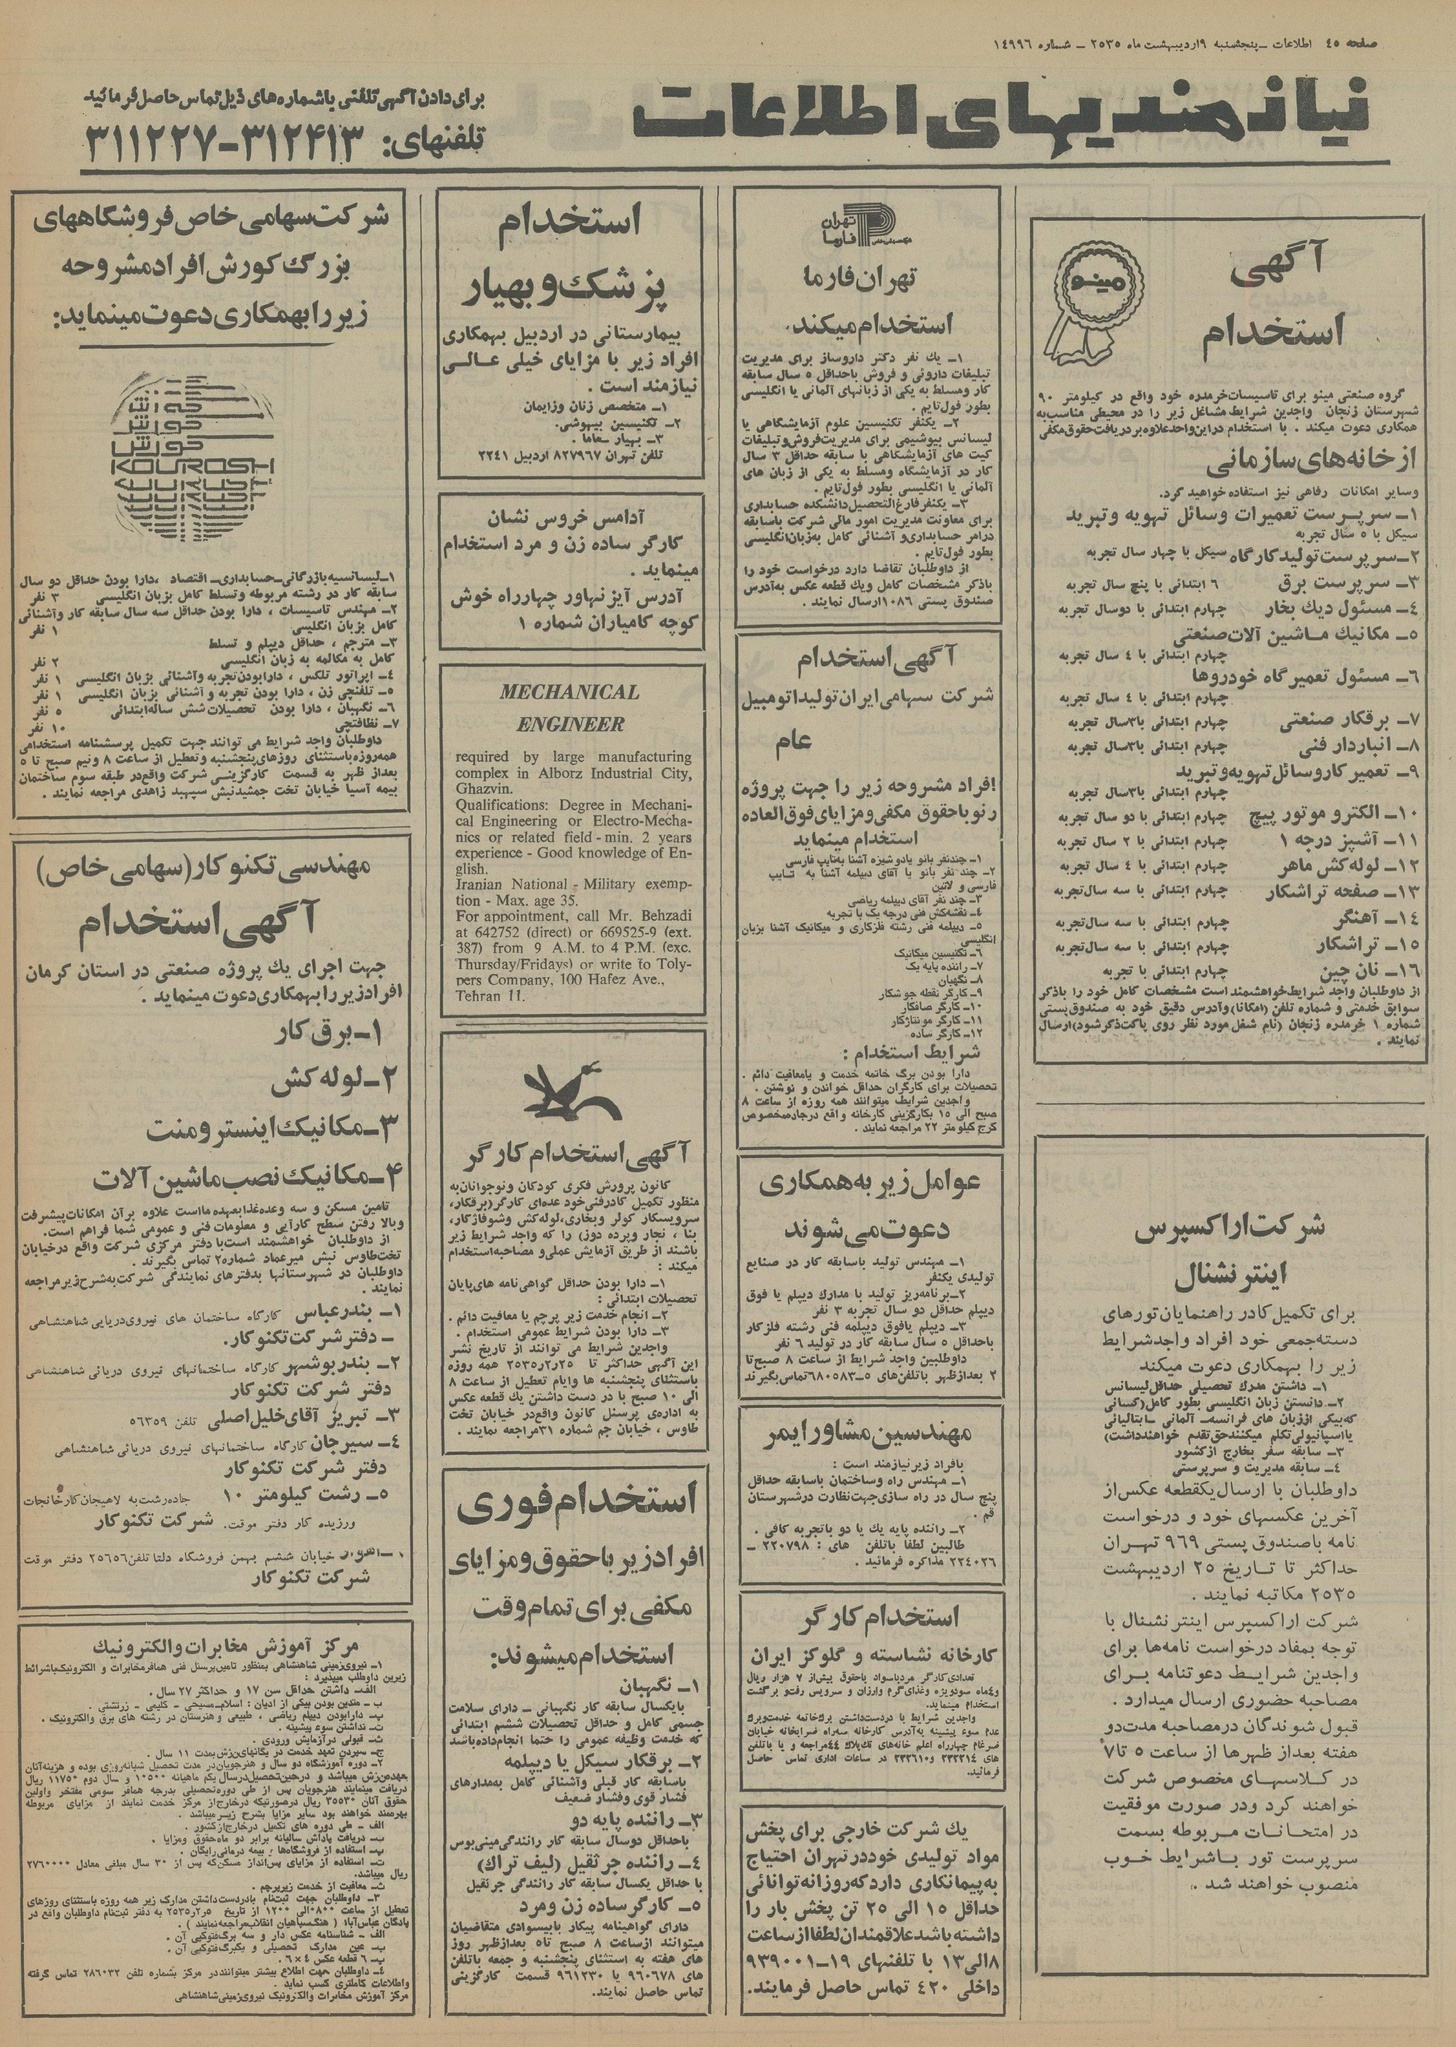 صفحه ٤٥ اطلاعات ــ پنجشنبه ٩ اردیبهشت ماه ٢٥٣٥ ــ شماره ١٤٩٩٦
نیازمندیهای اطلاعات
برای دادن آگهی تلفنی با شماره های ذیل تماس حاصل فرمائید
تلفنهای: ۳۱۲۴۱۳-۳۱۱۲۲۷
مینو
آگهی
استخدام
گروه صنعتی مینو برای تاسیسات خرمدره خود واقع در کیلومتر ٩٠
شهرستان زنجان واجدین شرایط مشاغل زیر را در محیطی مناسب به
همکاری دعوت میکند . با استخدام در این واحد علاوه بر دریافت حقوق مکفی
از خانه های سازمانی
وسایر امکانات رفاهی نیز استفاده خواهید کرد.
١ــ سرپرست تعمیرات وسائل تهویه و تبرید
سیکل با ٥ سال تجربه
٢ــ سرپرست تولید کارگاه سیکل با چهار سال تجربه
٣ــ سرپرست برق ٦ ابتدائی با پنج سال تجربه
٤ــ مسئول دیگ بخار چهارم ابتدائی با دوسال تجربه
٥ــ مکانیک ماشین آلات صنعتی
چهارم ابتدائی با ٤ سال تجربه
٦ــ مسئول تعمیرگاه خودروها
چهارم ابتدائی با ٤ سال تجربه
٧ــ برقکار صنعتی چهارم ابتدائی با ٣سال تجربه
٨ــ انباردار فنی چهارم ابتدائی با ٣سال تجربه
٩ــ تعمیرکار وسائل تهویه و تبرید
چهارم ابتدائی با ٣سال تجربه
١٠ــ الکترو موتور پیچ چهارم ابتدائی با دو سال تجربه
١١ــ آشپز درجه ١ چهارم ابتدائی با ٢ سال تجربه
١٢ــ لوله کش ماهر چهارم ابتدائی با ٤ سال تجربه
١٣ــ صفحه تراشکار چهارم ابتدائی با سه سال تجربه
١٤ــ آهنگر چهارم ابتدائی با سه سال تجربه
١٥ــ تراشکار چهارم ابتدائی با سه سال تجربه
١٦ــ نان چین چهارم ابتدائی با تجربه
از داوطلبان واجد شرایط خواهشمند است مشخصات کامل خود را باذکر
سوابق خدمتی و شماره تلفن (امکانا) و آدرس دقیق خود به صندوق پستی
شماره ١ خرمدره زنجان (نام شغل مورد نظر روی پاکت ذکر شود) ارسال
نمایند .
شرکت اراکسپرس
اینترنشنال
برای تکمیل کادر راهنمایان تورهای
دسته جمعی خود افراد واجد شرایط
زیر را بهمکاری دعوت میکند
١ــ داشتن مدرک تحصیلی حداقل لیسانس
٢ــ دانستن زبان انگلیسی بطور کامل (کسانی
که بیکی از زبان های فرانسه ــ آلمانی ــ ایتالیائی
یا اسپانیولی تکلم میکنند حق تقدم خواهند داشت)
٣ــ سابقه سفر بخارج از کشور
٤ــ سابقه مدیریت و سرپرستی
داوطلبان با ارسال یکقطعه عکس از
آخرین عکسهای خود و درخواست
نامه با صندوق پستی ٩٦٩ تهران
حداکثر تا تاریخ ٢٥ اردیبهشت
٢٥٣٥ مکاتبه نمایند .
شرکت اراکسپرس اینترنشنال با
توجه بمفاد درخواست نامه ها برای
واجدین شرایط دعوتنامه برای
مصاحبه حضوری ارسال میدارد .
قبول شوندگان در مصاحبه مدت دو
هفته بعد از ظهرها از ساعت ٥ تا ٧
در کلاسهای مخصوص شرکت
خواهند کرد و در صورت موفقیت
در امتحانات مربوطه بسمت
سرپرست تور با شرایط خوب
منصوب خواهند شد .
تهران
فارما
تهران فارما
استخدام میکند .
١ــ یك نفر دکتر داروساز برای مدیریت
تبلیغات داروئی و فروش با حداقل ٥ سال سابقه
کار و مسلط به یکی از زبانهای آلمانی یا انگلیسی
بطور فول تایم .
٢ــ یکنفر تکنیسین علوم آزمایشگاهی یا
لیسانس بیوشیمی برای مدیریت فروش و تبلیغات
کیت های آزمایشگاهی با سابقه حداقل ٣ سال
کار در آزمایشگاه و مسلط به یکی از زبان های
آلمانی یا انگلیسی بطور فول تایم .
٣ــ یکنفر فارغ التحصیل دانشکده حسابداری
برای معاونت مدیریت امور مالی شرکت با سابقه
در امر حسابداری و آشنائی کامل به زبان انگلیسی
بطور فول تایم .
از داوطلبان تقاضا دارد درخواست خود را
با ذکر مشخصات کامل و یك قطعه عکس به آدرس
صندوق پستی ١٠٨٦ ارسال نمایند .
آگهی استخدام
شرکت سهامی ایران تولید اتومبیل
عام
افراد مشروحه زیر را جهت پروژه
رنو با حقوق مکفی و مزایای فوق العاده
استخدام مینماید
١ــ چند نفر بانو یا دوشیزه آشنا به تایپ فارسی
٢ــ چند نفر بانو یا آقای دیپلمه آشنا به تایپ
فارسی و لاتین
٣ــ چند نفر آقای دیپلمه ریاضی
٤ــ نقشه کش فنی درجه یک با تجربه
٥ــ دیپلمه فنی رشته فلزکاری و میکانیک آشنا بزبان
انگلیسی
٦ــ تکنسین میکانیک
٧ــ راننده پایه یک
٨ــ نگهبان
٩ــ کارگر نقطه جوشکار
١٠ــ کارگر صافکار
١١ــ کارگر مونتاژکار
١٢ــ کارگر ساده
شرایط استخدام :
دارا بودن برگ خاتمه خدمت و یا معافیت دائم .
تحصیلات برای کارگران حداقل خواندن و نوشتن .
واجدین شرایط میتوانند همه روزه از ساعت ٨
صبح الی ١٥ بکارگزینی کارخانه واقع در جاده مخصوص
کرج کیلومتر ٢٢ مراجعه نمایند .
عوامل زیر به همکاری
دعوت می شوند
١ــ مهندس تولید با سابقه کار در صنایع
تولیدی یکنفر
٢ــ برنامه ریز تولید با مدارک دیپلم یا فوق
دیپلم حداقل دو سال تجربه ٣ نفر
٣ــ دیپلم یا فوق دیپلمه فنی رشته فلزکار
با حداقل ٥ سال سابقه کار در تولید ٦ نفر
داوطلبین واجد شرایط از ساعت ٨ صبح تا
٢ بعد از ظهر با تلفن های ٥ــ٦٨٠٥٨٣ تماس بگیرند
مهندسین مشاور ایمر
بافراد زیر نیازمند است :
١ــ مهندس راه و ساختمان با سابقه حداقل
پنج سال در راه سازی جهت نظارت در شهرستان
قم .
٢ــ راننده پایه یك یا دو با تجربه کافی .
طالبین لطفا با تلفن های : ٢٢٠٧٩٨ ــ
٢٢٤٠٢٦ مذاکره فرمائید .
استخدام کارگر
کارخانه نشاسته و گلوکز ایران
تعدادی کارگر مرد باسواد با حقوق بیش از ٧ هزار ریال
و ٤ماه سود ویژه و غذای گرم و ارزان و سرویس رفت و برگشت
استخدام مینماید.
واجدین شرایط با در دست داشتن برگ خاتمه خدمت و برگ
عدم سوء پیشینه به آدرس کارخانه سه راه ضرابخانه خیابان
ضرغام چهارراه اعلم خانه های تك پلاك ٤٤ مراجعه و یا با تلفن
های ٢٣٢٢١٤ و ٢٣٢٦١٠ در ساعات اداری تماس حاصل
فرمائید.
یك شرکت خارجی برای پخش
مواد تولیدی خود در تهران احتیاج
به پیمانکاری دارد که روزانه توانائی
حداقل ١٥ الی ٢٥ تن پخش بار را
داشته باشد علاقمندان لطفا از ساعت
٨الی ١٣ با تلفنهای ١٩ــ٩٣٩٠٠١
داخلی ٤٢٠ تماس حاصل فرمایند.
استخدام
پزشک و بهیار
بیمارستانی در اردبیل بهمکاری
افراد زیر با مزایای خیلی عالی
نیازمند است .
١ــ متخصص زنان و زایمان
٢ــ تکنسین بیهوشی.
٣ــ بهیار ساما .
تلفن تهران ٨٢٧٩٦٧ اردبیل ٢٢٤١
آدامس خروس نشان
کارگر ساده زن و مرد استخدام
مینماید .
آدرس آیزنهاور چهارراه خوش
کوچه کامیاران شماره ١
MECHANICAL
ENGINEER
required by large manufacturing
complex in Alborz Industrial City,
Ghazvin.
Qualifications: Degree in Mechani-
cal Engineering or Electro-Mecha-
nics or related field - min. 2 years
experience - Good knowledge of En-
glish.
Iranian National - Military exemp-
tion - Max. age 35.
For appointment, call Mr. Behzadi
at 642752 (direct) or 669525-9 (ext.
387) from 9 A.M. to 4 P.M. (exc.
Thursday/Fridays) or write to Toly-
pers Company, 100 Hafez Ave.,
Tehran 11.
آگهی استخدام کارگر
کانون پرورش فکری کودکان و نوجوانان به
منظور تکمیل کادر فنی خود عده ای کارگر (برقکار،
سرویسکار کولر و بخاری، لوله کش و شوفاژکار،
بنا ، نجار و پرده دوز) را که واجد شرایط زیر
باشند از طریق آزمایش عملی و مصاحبه استخدام
میکند :
١ــ دارا بودن حداقل گواهی نامه های پایان
تحصیلات ابتدائی :
٢ــ انجام خدمت زیر پرچم یا معافیت دائم .
٣ــ دارا بودن شرایط عمومی استخدام .
واجدین شرایط می توانند از تاریخ نشر
این آگهی حداکثر تا ٢٥ر٢ر٢٥٣٥ همه روزه
باستثنای پنجشنبه ها و ایام تعطیل از ساعت ٨
الی ١٠ صبح با در دست داشتن یك قطعه عکس
به اداره ی پرسنل کانون واقع در خیابان تخت
طاوس ، خیابان جم شماره ٣١ مراجعه نمایند .
استخدام فوری
افراد زیر با حقوق و مزایای
مکفی برای تمام وقت
استخدام میشوند:
١ــ نگهبان
با یکسال سابقه کار نگهبانی ــ دارای سلامت
جسمی کامل و حداقل تحصیلات ششم ابتدائی
که خدمت وظیفه عمومی را حتما انجام داده باشد
٢ــ برقکار سیکل یا دیپلمه
با سابقه کار قبلی و آشنائی کامل به مدارهای
فشار قوی و فشار ضعیف
٣ــ راننده پایه دو
با حداقل دوسال سابقه کار رانندگی مینی بوس
٤ــ راننده جرثقیل (لیف تراك)
با حداقل یکسال سابقه کار رانندگی جرثقیل
٥ــ کارگر ساده زن و مرد
دارای گواهینامه پیکار با بیسوادی متقاضیان
میتوانند از ساعت ٨ صبح تا ٥ بعد از ظهر روز
های هفته به استثنای پنجشنبه و جمعه با تلفن
های ٩٦٠٦٧٨ یا ٩٦١٢٣٠ قسمت کارگزینی
تماس حاصل نمایند.
شرکت سهامی خاص فروشگاههای
بزرگ کورش افراد مشروحه
زیر را بهمکاری دعوت مینماید:
کورش
کورش
KOUROSH
١ــ لیسانسیه بازرگانی ــ حسابداری ــ اقتصاد ، دارا بودن حداقل دو سال
سابقه کار در رشته مربوطه و تسلط کامل بزبان انگلیسی ٣ نفر
٢ــ مهندس تاسیسات ، دارا بودن حداقل سه سال سابقه کار و آشنائی
کامل بزبان انگلیسی ١ نفر
٣ــ مترجم ، حداقل دیپلم و تسلط
کامل به مکالمه به زبان انگلیسی ٢ نفر
٤ــ اپراتور تلکس ، دارا بودن تجربه و آشنائی بزبان انگلیسی ١ نفر
٥ــ تلفنچی زن ، دارا بودن تجربه و آشنائی بزبان انگلیسی ١ نفر
٦ــ نگهبان ، دارا بودن تحصیلات شش ساله ابتدائی ٥ نفر
٧ــ نظافتچی ١٠ نفر
داوطلبان واجد شرایط می توانند جهت تکمیل پرسشنامه استخدامی
همه روزه باستثنای روزهای پنجشنبه و تعطیل از ساعت ٨ و نیم صبح تا ٥
بعد از ظهر به قسمت کارگزینی شرکت واقع در طبقه سوم ساختمان
بیمه آسیا خیابان تخت جمشید نبش سپهبد زاهدی مراجعه نمایند .
مهندسی تکنوکار (سهامی خاص)
آگهی استخدام
جهت اجرای یك پروژه صنعتی در استان کرمان
افراد زیر را بهمکاری دعوت مینماید .
١ــ برق کار
٢ــ لوله کش
٣ــ مکانیک اینسترومنت
۴ــ مکانیک نصب ماشین آلات
تامین مسکن و سه وعده غذا بعهده ما است علاوه بر آن امکانات پیشرفت
و بالا رفتن سطح کارآیی و معلومات فنی و عمومی شما فراهم است.
از داوطلبان خواهشمند است با دفتر مرکزی شرکت واقع در خیابان
تخت طاوس نبش میرعماد شماره ٢ تماس بگیرند .
داوطلبان در شهرستانها بدفترهای نمایندگی شرکت به شرح زیر مراجعه
نمایند .
١ــ بندرعباس کارگاه ساختمان های نیروی دریایی شاهنشاهی
ــ دفتر شرکت تکنوکار.
٢ــ بندر بوشهر کارگاه ساختمانهای نیروی دریائی شاهنشاهی
دفتر شرکت تکنوکار
٣ــ تبریز آقای خلیل اصلی تلفن ٥٦٣٥٩
٤ــ سیرجان کارگاه ساختمانهای نیروی دریائی شاهنشاهی
دفتر شرکت تکنوکار
٥ــ رشت کیلومتر ١٠ جاده رشت به لاهیجان کارخانجات
ورزیده کار دفتر موقت. شرکت تکنوکار
خیابان ششم بهمن فروشگاه دلتا تلفن ٢٥٦٥٦ دفتر موقت
شرکت تکنوکار
مرکز آموزش مخابرات و الکترونیك
١ــ نیروی زمینی شاهنشاهی بمنظور تامین پرسنل فنی همافر مخابرات و الکترونیک باشرائط
زیرین داوطلب میپذیرد :
الف ــ داشتن حداقل سن ١٧ و حداکثر ٢٧ سال .
ب ــ متدین بودن بیکی از ادیان : اسلام ــ مسیحی ــ کلیمی ــ زرتشتی .
پ ــ دارا بودن دیپلم ریاضی ، طبیعی و هنرستان در رشته های برق و الکترونیک .
ت ــ نداشتن سوء پیشینه .
ث ــ قبولی در آزمایش ورودی .
ج ــ سپردن تعهد خدمت در یگانهای نزش بمدت ١١ سال .
٢ــ دوره آموزشگاه دو سال و هنرجویان در مدت تحصیل شبانه روزی بوده و هزینه آنان
بعهده نزش میباشد و در حین تحصیل در سال یکم ماهیانه ١٠٥٠٠ و سال دوم ١١٧٥٠ ریال
دریافت مینمایند هنرجویان پس از طی دوره تحصیلی بدرجه همافر سومی مفتخر و اولین
حقوق آنان ٣٥٥٣٠ ریال در صورتیکه در خارج از مرکز خدمت نمایند از مزایای مربوطه
بهره مند خواهند بود سایر مزایا بشرح زیر میباشد .
الف ــ طی دوره های تکمیل در خارج از کشور .
ب ــ دریافت پاداش سالیانه برابر دو ماه حقوق و مزایا .
پ ــ استفاده از فروشگاهها ، بیمه درمانی رایگان .
ت ــ استفاده از مزایای پس انداز مسکن که پس از ٣٠ سال مبلغی معادل ٢٧٦٠٠٠٠
ریال میباشد.
ث ــ معافیت از خدمت زیر پرچم .
٣ــ داوطلبان جهت ثبت نام با در دست داشتن مدارک زیر همه روزه باستثنای روزهای
تعطیل از ساعت ٠٨٠٠ الی ١٢٠٠ از تاریخ ٥ر٢ر٢٥٣٥ به دفتر ثبت نام داوطلبان واقع در
پادگان عباس آباد ( هنگ سپاهیان انقلاب مراجعه نمایند ) .
الف ــ شناسنامه عکس دار و سه برگ فتوکپی آن .
ب ــ عین مدارک تحصیلی و یکبرگ فتوکپی آن .
پ ــ ٦ قطعه عکس ٤×٦ .
٤ــ داوطلبان جهت اطلاع بیشتر میتوانند در مرکز بشماره تلفن ٢٨٦٠٣٢ تماس گرفته
و اطلاعات کاملتری کسب نماید .
مرکز آموزش مخابرات و الکترونیک نیروی زمینی شاهنشاهی